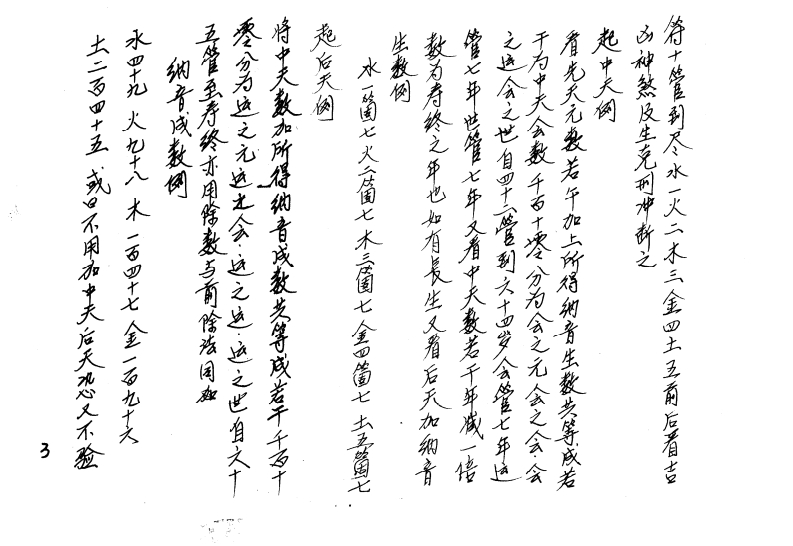 符十管到尽水一火二木三金四土五前后看吉
凶神煞及生克刑冲断之
起中天例
看先天元数若干加上所得纳音生数共等成若
干为中天会数千百十零分为会之元会之会会
之运会之世自四十六管到六十四岁会管七年运
管七年世管七年又看中天数若干年减一倍
数为寿终之年也如有長生又看后天加纳音
生数例
水一箇七火二箇七木三箇七金四箇七土五箇七
起后天例
将中天数加所得纳音成数共等成若干千百十
零分为运之元运之会运之运运之世自六十
五管至寿终亦用除数与前除法同如
纳音成数例
水四十九 火九十八 木一百四十七 金一百九十六
土二百四十五 或曰不用加中天后天恐又不验
3